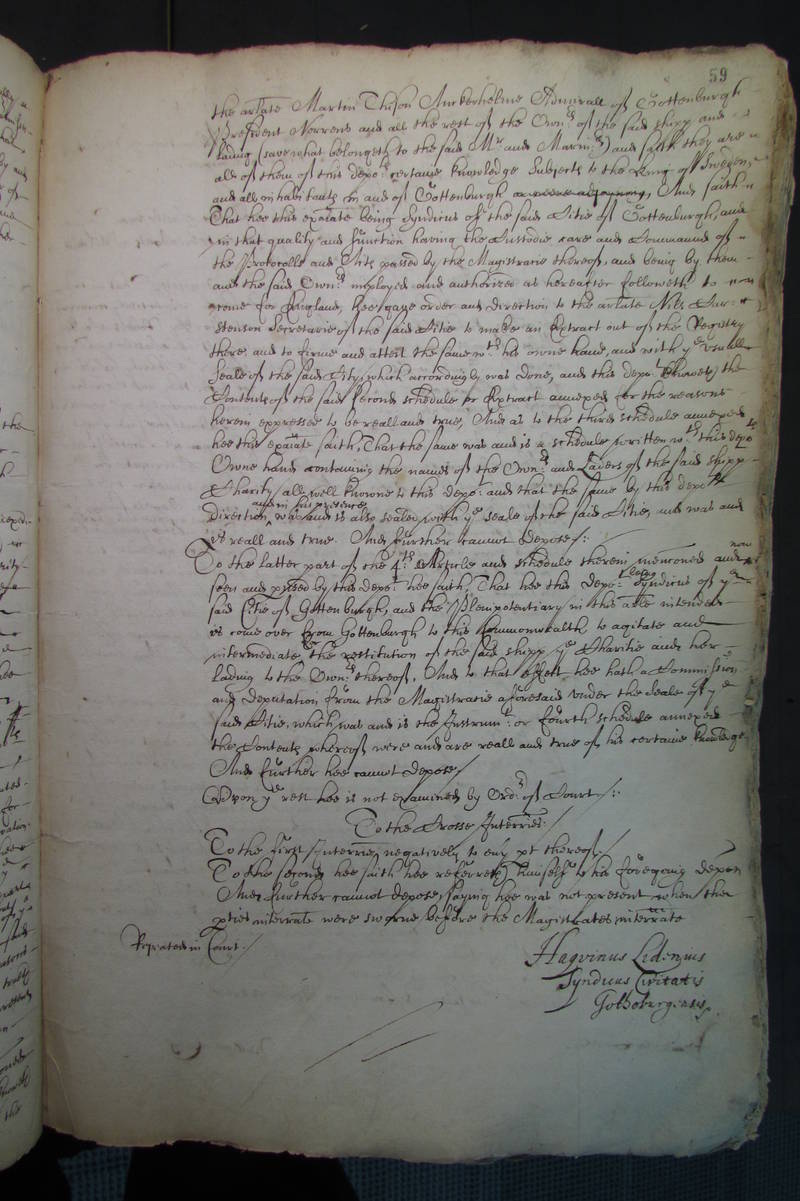 59
the arlate Martin Thison Anckerhelme Admirall of Gottenburgh
President Norrens and all the rest of the Own:rs of the said shipp and
lading (save what belongeth to the said Mr and Marin:rs) and saith they are
all of them of this depo:ts certaine knowledge Subjects to the King of Sweden,
and all inhabitants in and of Gottenburgh And saith
That hee this exaiate being Syndicus of the said Citie of Gottenburgh, and
in that quality and function having the Custodie care and Command of
the Protocolls and Acts passed by the Magistracie thereof, and being by them
and the said Own:rs imployed and authorized as hereafter followeth to
come for England, hee gave order and direction to the arlate Nils
Secretarie of the said Citie to make an Extract out of the Registry
there, and to firme and attest the same wth his owne hand, and with ye usuall
Seale of the said City, which accordingly was done, and this depot knoweth the
Contents of the said second schedule or Extract annexed for the reasons
herein expressed to be reall and true, And as to the third schedule annexed
hee this exaiate saith, That the same was and is a schedule written wth this depots
Owne hand containing the names of the Own:rs and Laders of the said shipp
Charity all well knowne to this depo:t and that the same by this depots
and in his presence
direction was and is also sealed with ye seale of the said Citie, and was and
is reall and true. And further cannot depose:
To the latter part of the 4th Article and schedule therein mencioned and now
seen and p[er]used by this depo:t hee saith, That hee this depo:t being Syndicus of ye
said Citie of Gottenburgh, and the Plenipotentiary in this arle intended
is come over from Gottenburgh to this Commonwealth to agitate and
intermediate the restitution of the said shipp ye Charitie and her
lading to the Own:rs thereof, And to that effect hee hath a Commission
and Deputation from the Magistracie aforesaid under the seale of ye
said Citie, which was and is the Instrum:t or fourth schedule annexed
the Contents whereof were and are reall and true of his certaine knowledge
And further hee cannot depose/
Upon ye rest hee is not examined by Ord:r of Court/:
To the Crosse Interries:
To the first Interrie negatively to eny pt thereof/
To the second hee saith hee referreth himselfe to his foregoing depon
And further cannot depose, saying hee was not present when the
pties interrate were sworne before the Magistrates interrate
Repeated in Court./
Haqvinus Lidenius
Syndicus Civitatis
Gothoburgensis